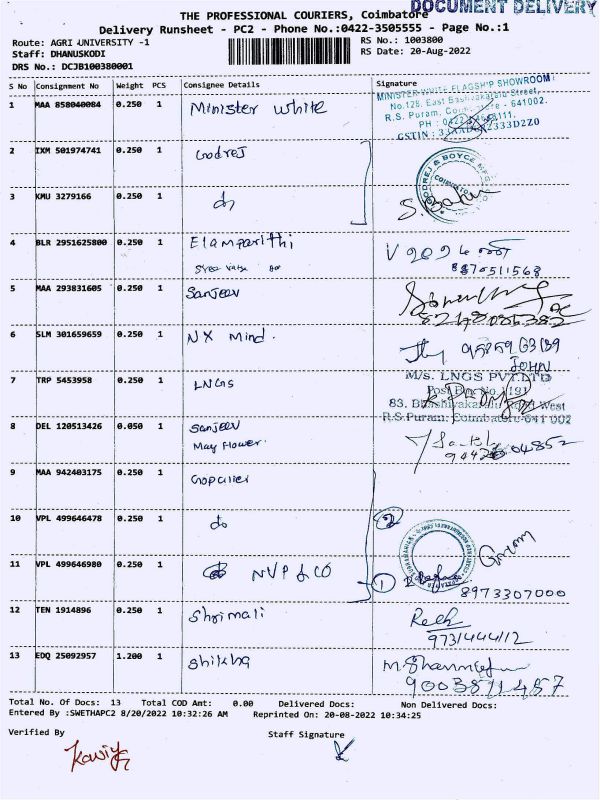 DOCUMENT DELIVERY
THE PROFESSIONAL COURIERS, Coimbatore
Delivery Runsheet - PC2 - Phone No.:0422-3505555 - Page No.:1
Route: AGRI UNIVERSITY -1
RS No.: 1003800
Staff: DHANUSKODI
RS Date: 20-Aug-2022
DRS No.: DCJB100380001
S No Consignment No Weight PCS Consignee Details Signature
1 MAA 858040084 0.250 1 Minister White
MINISTER WHITE FLAGSHIP SHOWROOM
No.128, East Bashyakaralu Street,
R.S. Puram, Coimbatore - 641002.
2 IXM 501974741 0.250 1 Godrej
GODREJ & BOYCE MFG.
3 KMU 3279166 0.250 1 do
4 BLR 2951625800 0.250 1 Elamparithi
8870511568
5 MAA 293831605 0.250 1 Sanjeev
6 SLM 301659659 0.250 1 NX Mind.
JOHN
7 TRP 5453958 0.250 1 LNGS
M/s. LNGS PVT LTD
83. Bhashyakaralu Road West
R.S.Puram, Coimbatore-641 002
8 DEL 120513426 0.050 1 Sanjeev
May Flower.
9 MAA 942403175 0.250 1
10 VPL 499646478 0.250 1 do
2
11 VPL 499646980 0.250 1 NVP & CO
1
8973307000
12 TEN 1914896 0.250 1 Shrimali
9731444112
13 EDQ 25092957 1.200 1 Shikha
9003811457
Total No. Of Docs: 13 Total COD Amt: 0.00 Delivered Docs: Non Delivered Docs:
Entered By :SWETHAPC2 8/20/2022 10:32:26 AM Reprinted On: 20-08-2022 10:34:25
Verified By Staff Signature
Kaviya